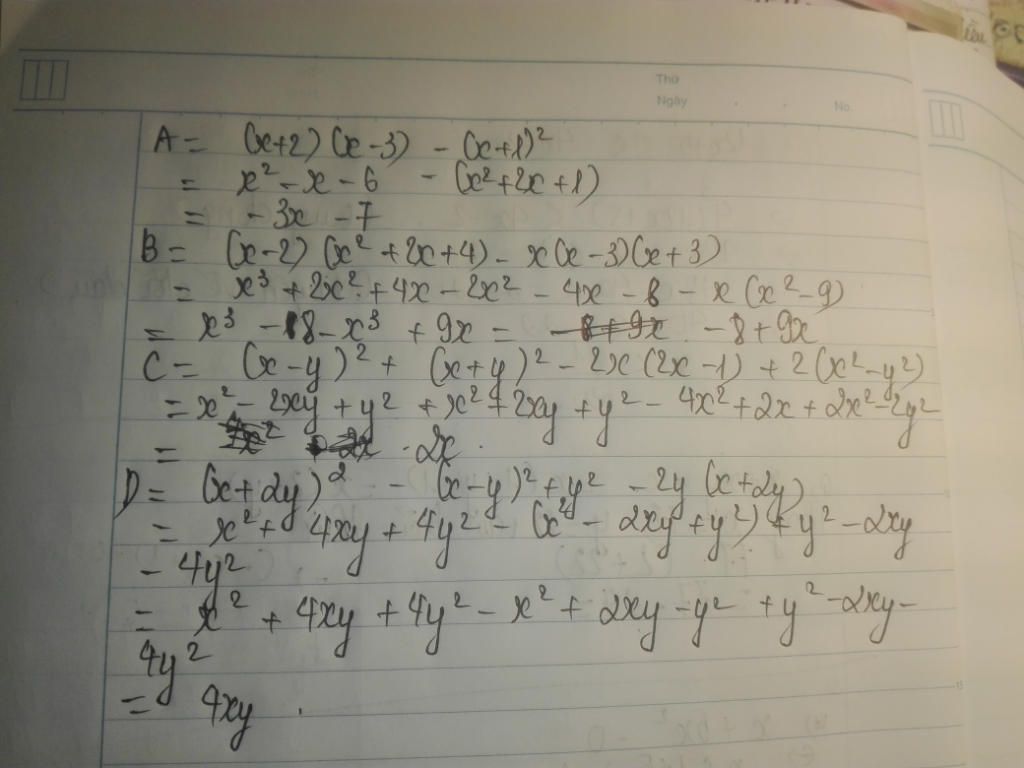 Thứ
Ngày . . No.
A = (x+2)(x-3) - (x+1)²
= x² - x - 6 - (x²+2x+1)
= -3x -7
B = (x-2)(x²+2x+4) - x(x-3)(x+3)
= x³ + 2x² + 4x - 2x² - 4x - 8 - x(x²-9)
= x³ - 8 - x³ + 9x = - 8 + 9x
C = (x-y)² + (x+y)² - 2x(2x-1) + 2(x²-y²)
= x² - 2xy + y² + x² + 2xy + y² - 4x² + 2x + 2x² - 2y²
= 2x.
D = (x+2y)² - (x-y)² + y² - 2y(x+2y)
= x² + 4xy + 4y² - (x² - 2xy + y²) + y² - 2xy
- 4y²
= x² + 4xy + 4y² - x² + 2xy - y² + y² - 2xy -
4y²
= 4xy .